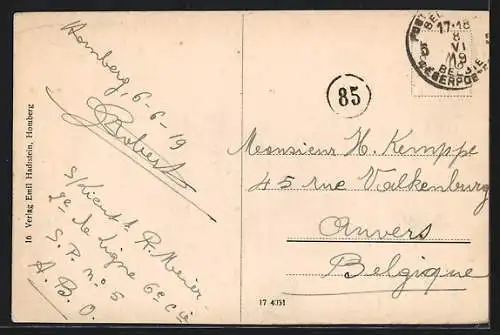 Homberg, 6-6-19
Robert
S/Lieut. R. Meier
2e de ligne 6e Cie
S. P. no 5
A. B. O.
16 Verlag Emil Hadstein, Homberg
17-18
8
VI
19
5
BELGIË
85
Monsieur H. Kemppe
45 rue Valkenburg
Anvers
Belgique
17 4051